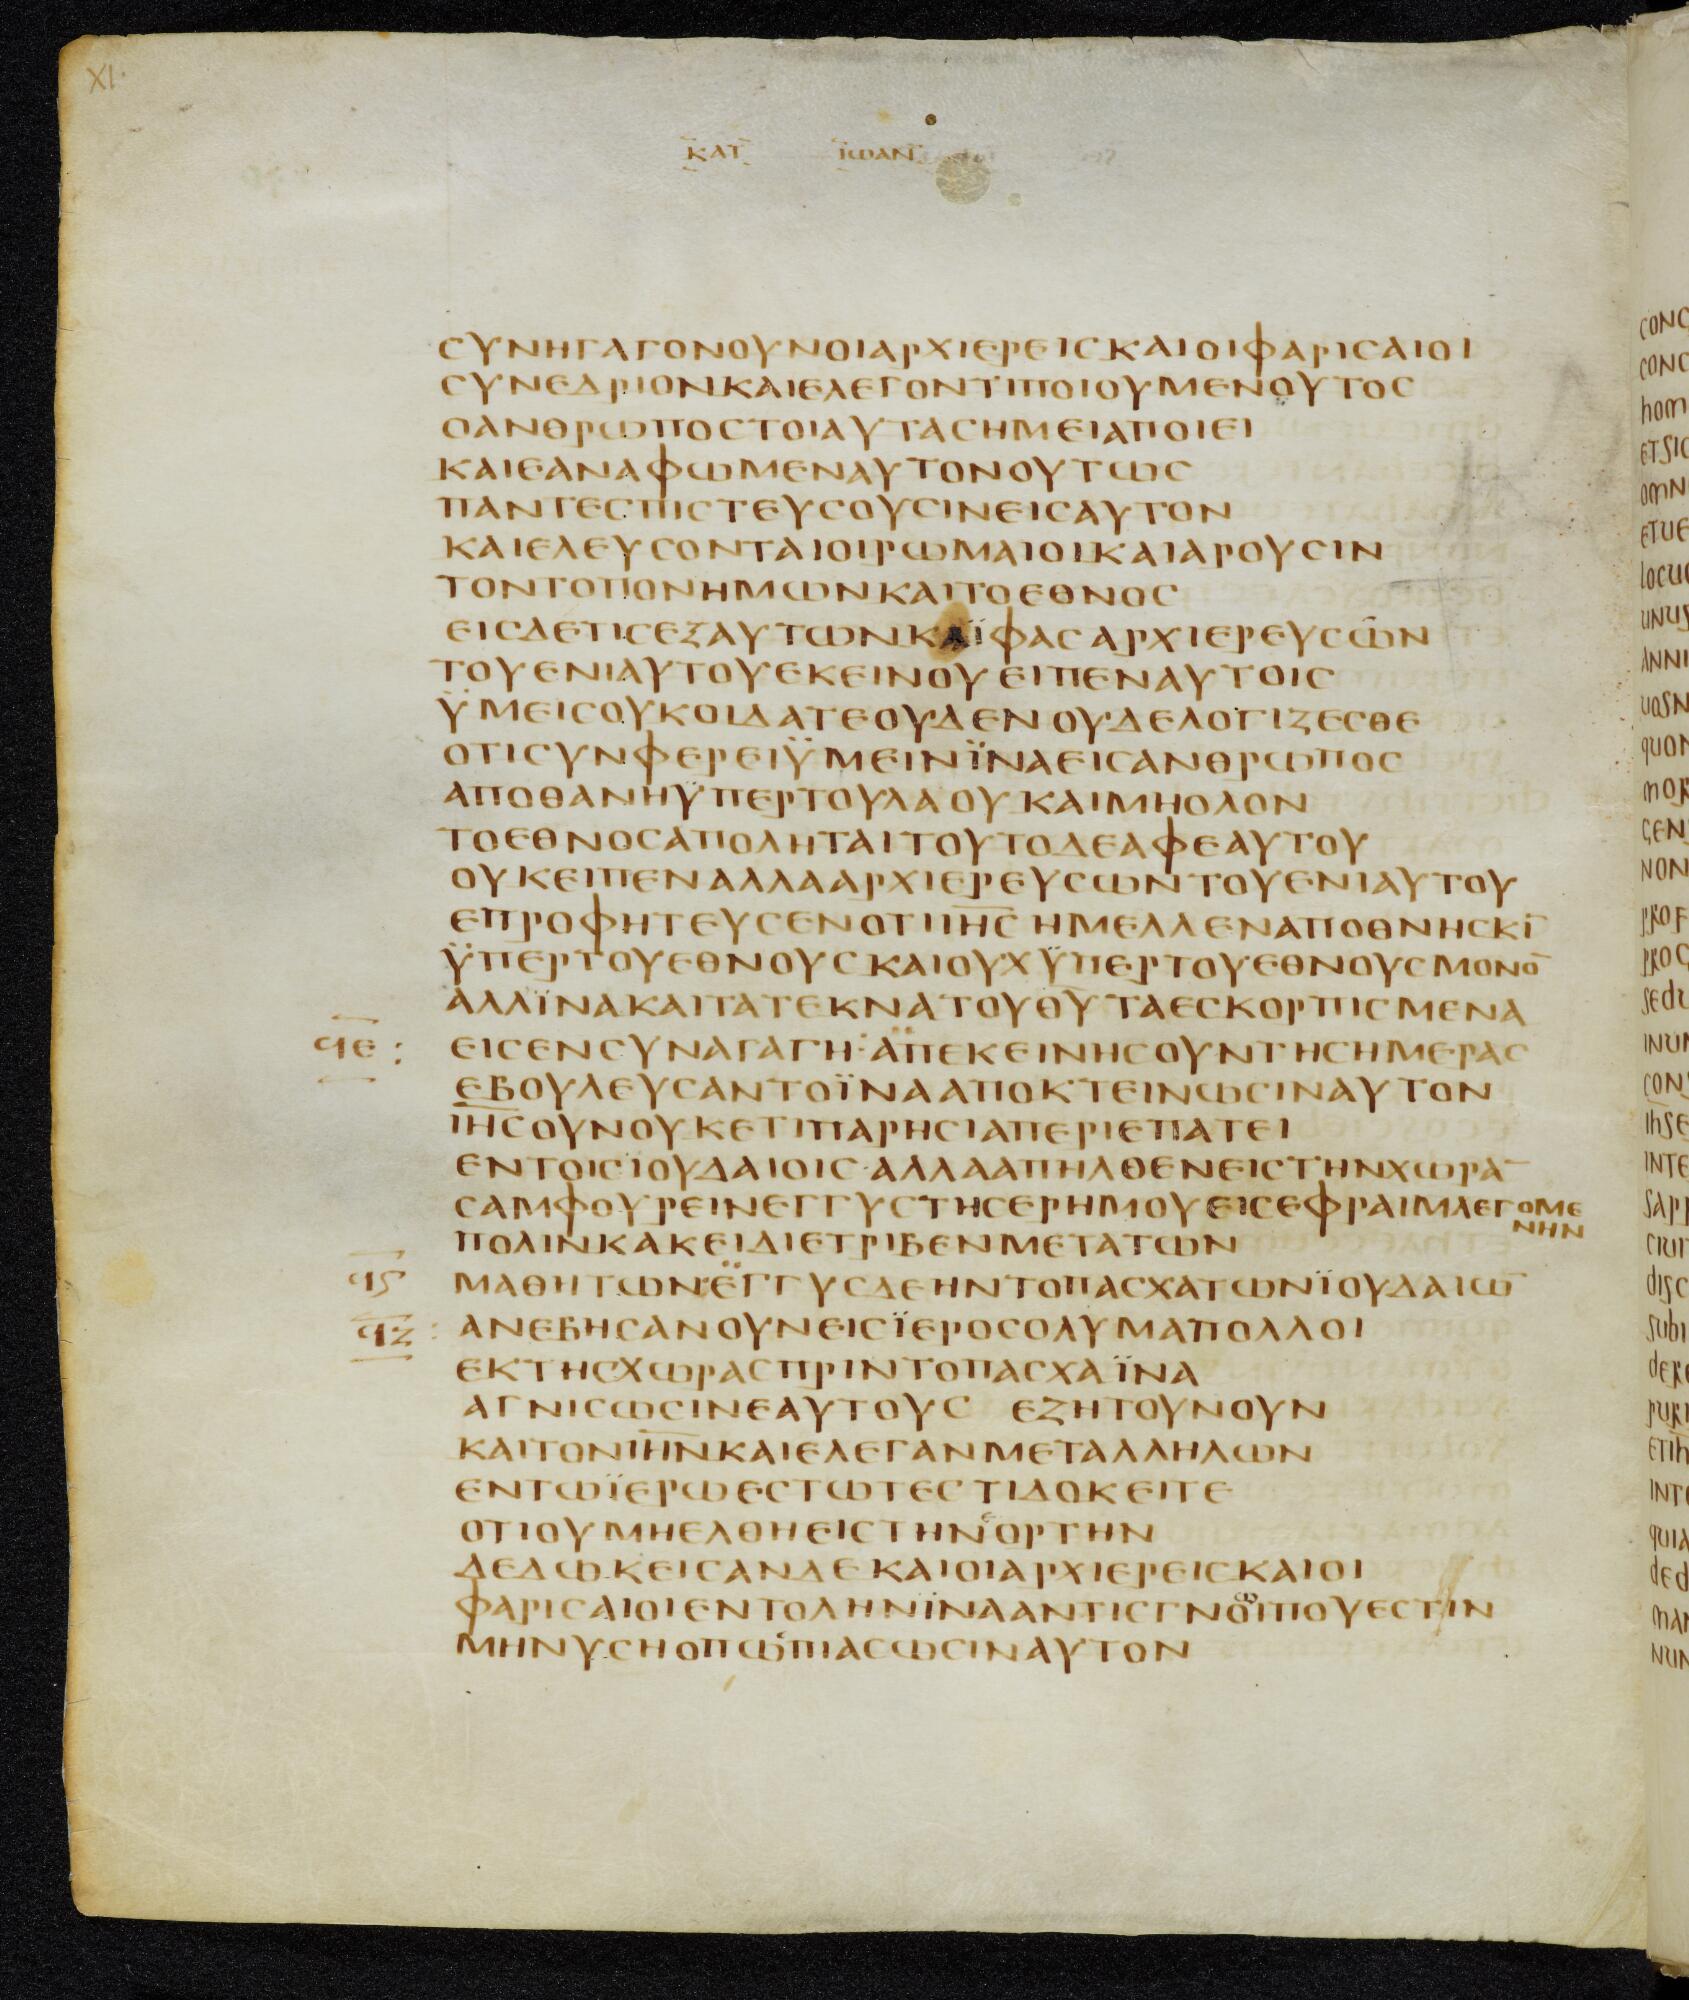 XI·
ΚΑΤ ΙΩΑΝ
ΣΥΝΗΓΑΓΟΝΟΥΝΟΙΑΡΧΙΕΡΕΙΣΚΑΙΟΙΦΑΡΙΣΑΙΟΙ
ΣΥΝΕΔΡΙΟΝΚΑΙΕΛΕΓΟΝΤΙΠΟΙΟΥΜΕΝΟΥΤΟΣ
ΟΑΝΘΡΩΠΟΣΤΟΙΑΥΤΑΣΗΜΕΙΑΠΟΙΕΙ
ΚΑΙΕΑΝΑΦΩΜΕΝΑΥΤΟΝΟΥΤΩΣ
ΠΑΝΤΕΣΠΙΣΤΕΥΣΟΥΣΙΝΕΙΣΑΥΤΟΝ
ΚΑΙΕΛΕΥΣΟΝΤΑΙΟΙΡΩΜΑΙΟΙΚΑΙΑΡΟΥΣΙΝ
ΤΟΝΤΟΠΟΝΗΜΩΝΚΑΙΤΟΕΘΝΟΣ
ΕΙΣΔΕΤΙΣΕΞΑΥΤΩΝΚΑΪΦΑΣΑΡΧΙΕΡΕΥΣΩΝ
ΤΟΥΕΝΙΑΥΤΟΥΕΚΕΙΝΟΥΕΙΠΕΝΑΥΤΟΙΣ
ΫΜΕΙΣΟΥΚΟΙΔΑΤΕΟΥΔΕΝΟΥΔΕΛΟΓΙΖΕΣΘΕ
ΟΤΙΣΥΝΦΕΡΕΙΫΜΕΙΝΪΝΑΕΙΣΑΝΘΡΩΠΟΣ
ΑΠΟΘΑΝΗΫΠΕΡΤΟΥΛΑΟΥΚΑΙΜΗΟΛΟΝ
ΤΟΕΘΝΟΣΑΠΟΛΗΤΑΙΤΟΥΤΟΔΕΑΦΕΑΥΤΟΥ
ΟΥΚΕΙΠΕΝΑΛΛΑΑΡΧΙΕΡΕΥΣΩΝΤΟΥΕΝΙΑΥΤΟΥ
ΕΠΡΟΦΗΤΕΥΣΕΝΟΤΙΙΗΣΗΜΕΛΛΕΝΑΠΟΘΝΗΣΚΙ̅
ΫΠΕΡΤΟΥΕΘΝΟΥΣΚΑΙΟΥΧΫΠΕΡΤΟΥΕΘΝΟΥΣΜΟΝΟ̅
ΑΛΛΪΝΑΚΑΙΤΑΤΕΚΝΑΤΟΥΘΥΤΑΕΣΚΟΡΠΙΣΜΕΝΑ
ϥΕ: ΕΙΣΕΝΣΥΝΑΓΑΓΗ:ΑΠΕΚΕΙΝΗΣΟΥΝΤΗΣΗΜΕΡΑΣ
ΕΒΟΥΛΕΥΣΑΝΤΟΪΝΑΑΠΟΚΤΕΙΝΩΣΙΝΑΥΤΟΝ
ΙΗΣΟΥΝΟΥΚΕΤΙΠΑΡΗΣΙΑΠΕΡΙΕΠΑΤΕΙ
ΕΝΤΟΙΣΙΟΥΔΑΙΟΙΣ·ΑΛΛΑΑΠΗΛΘΕΝΕΙΣΤΗΝΧΩΡΑ̅
ΣΑΜΦΟΥΡΕΙΝΕΓΓΥΣΤΗΣΕΡΗΜΟΥΕΙΣΕΦΡΑΙΜΛΕΓΟΜΕ
ΝΗΝ
ΠΟΛΙΝΚΑΚΕΙΔΙΕΤΡΙΒΕΝΜΕΤΑΤΩΝ
ϥϚ ΜΑΘΗΤΩΝ·ΕΓΓΥΣΔΕΗΝΤΟΠΑΣΧΑΤΩΝΪΟΥΔΑΙΩ̅
ϥΖ: ΑΝΕΒΗΣΑΝΟΥΝΕΙΣΪΕΡΟΣΟΛΥΜΑΠΟΛΛΟΙ
ΕΚΤΗΣΧΩΡΑΣΠΡΙΝΤΟΠΑΣΧΑΪΝΑ
ΑΓΝΙΣΩΣΙΝΕΑΥΤΟΥΣ ΕΖΗΤΟΥΝΟΥΝ
ΚΑΙΤΟΝΙΗΝΚΑΙΕΛΕΓΑΝΜΕΤΑΛΛΗΛΩΝ
ΕΝΤΩΪΕΡΩΕΣΤΩΤΕΣΤΙΔΟΚΕΙΤΕ
ΟΤΙΟΥΜΗΕΛΘΗΕΙΣΤΗΝΕΟΡΤΗΝ
ΔΕΔΩΚΕΙΣΑΝΔΕΚΑΙΟΙΑΡΧΙΕΡΕΙΣΚΑΙΟΙ
ΦΑΡΙΣΑΙΟΙΕΝΤΟΛΗΝΪΝΑΑΝΤΙΣΓΝΟΙΠΟΥΕΣΤΙΝ
ΜΗΝΥΣΗΟΠΩΣΠΙΑΣΩΣΙΝΑΥΤΟΝ